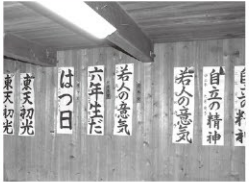 東天初光
東天初光
はつ日
六年生だ
若人の意気
若人の意気
自立の精神
自立の精神